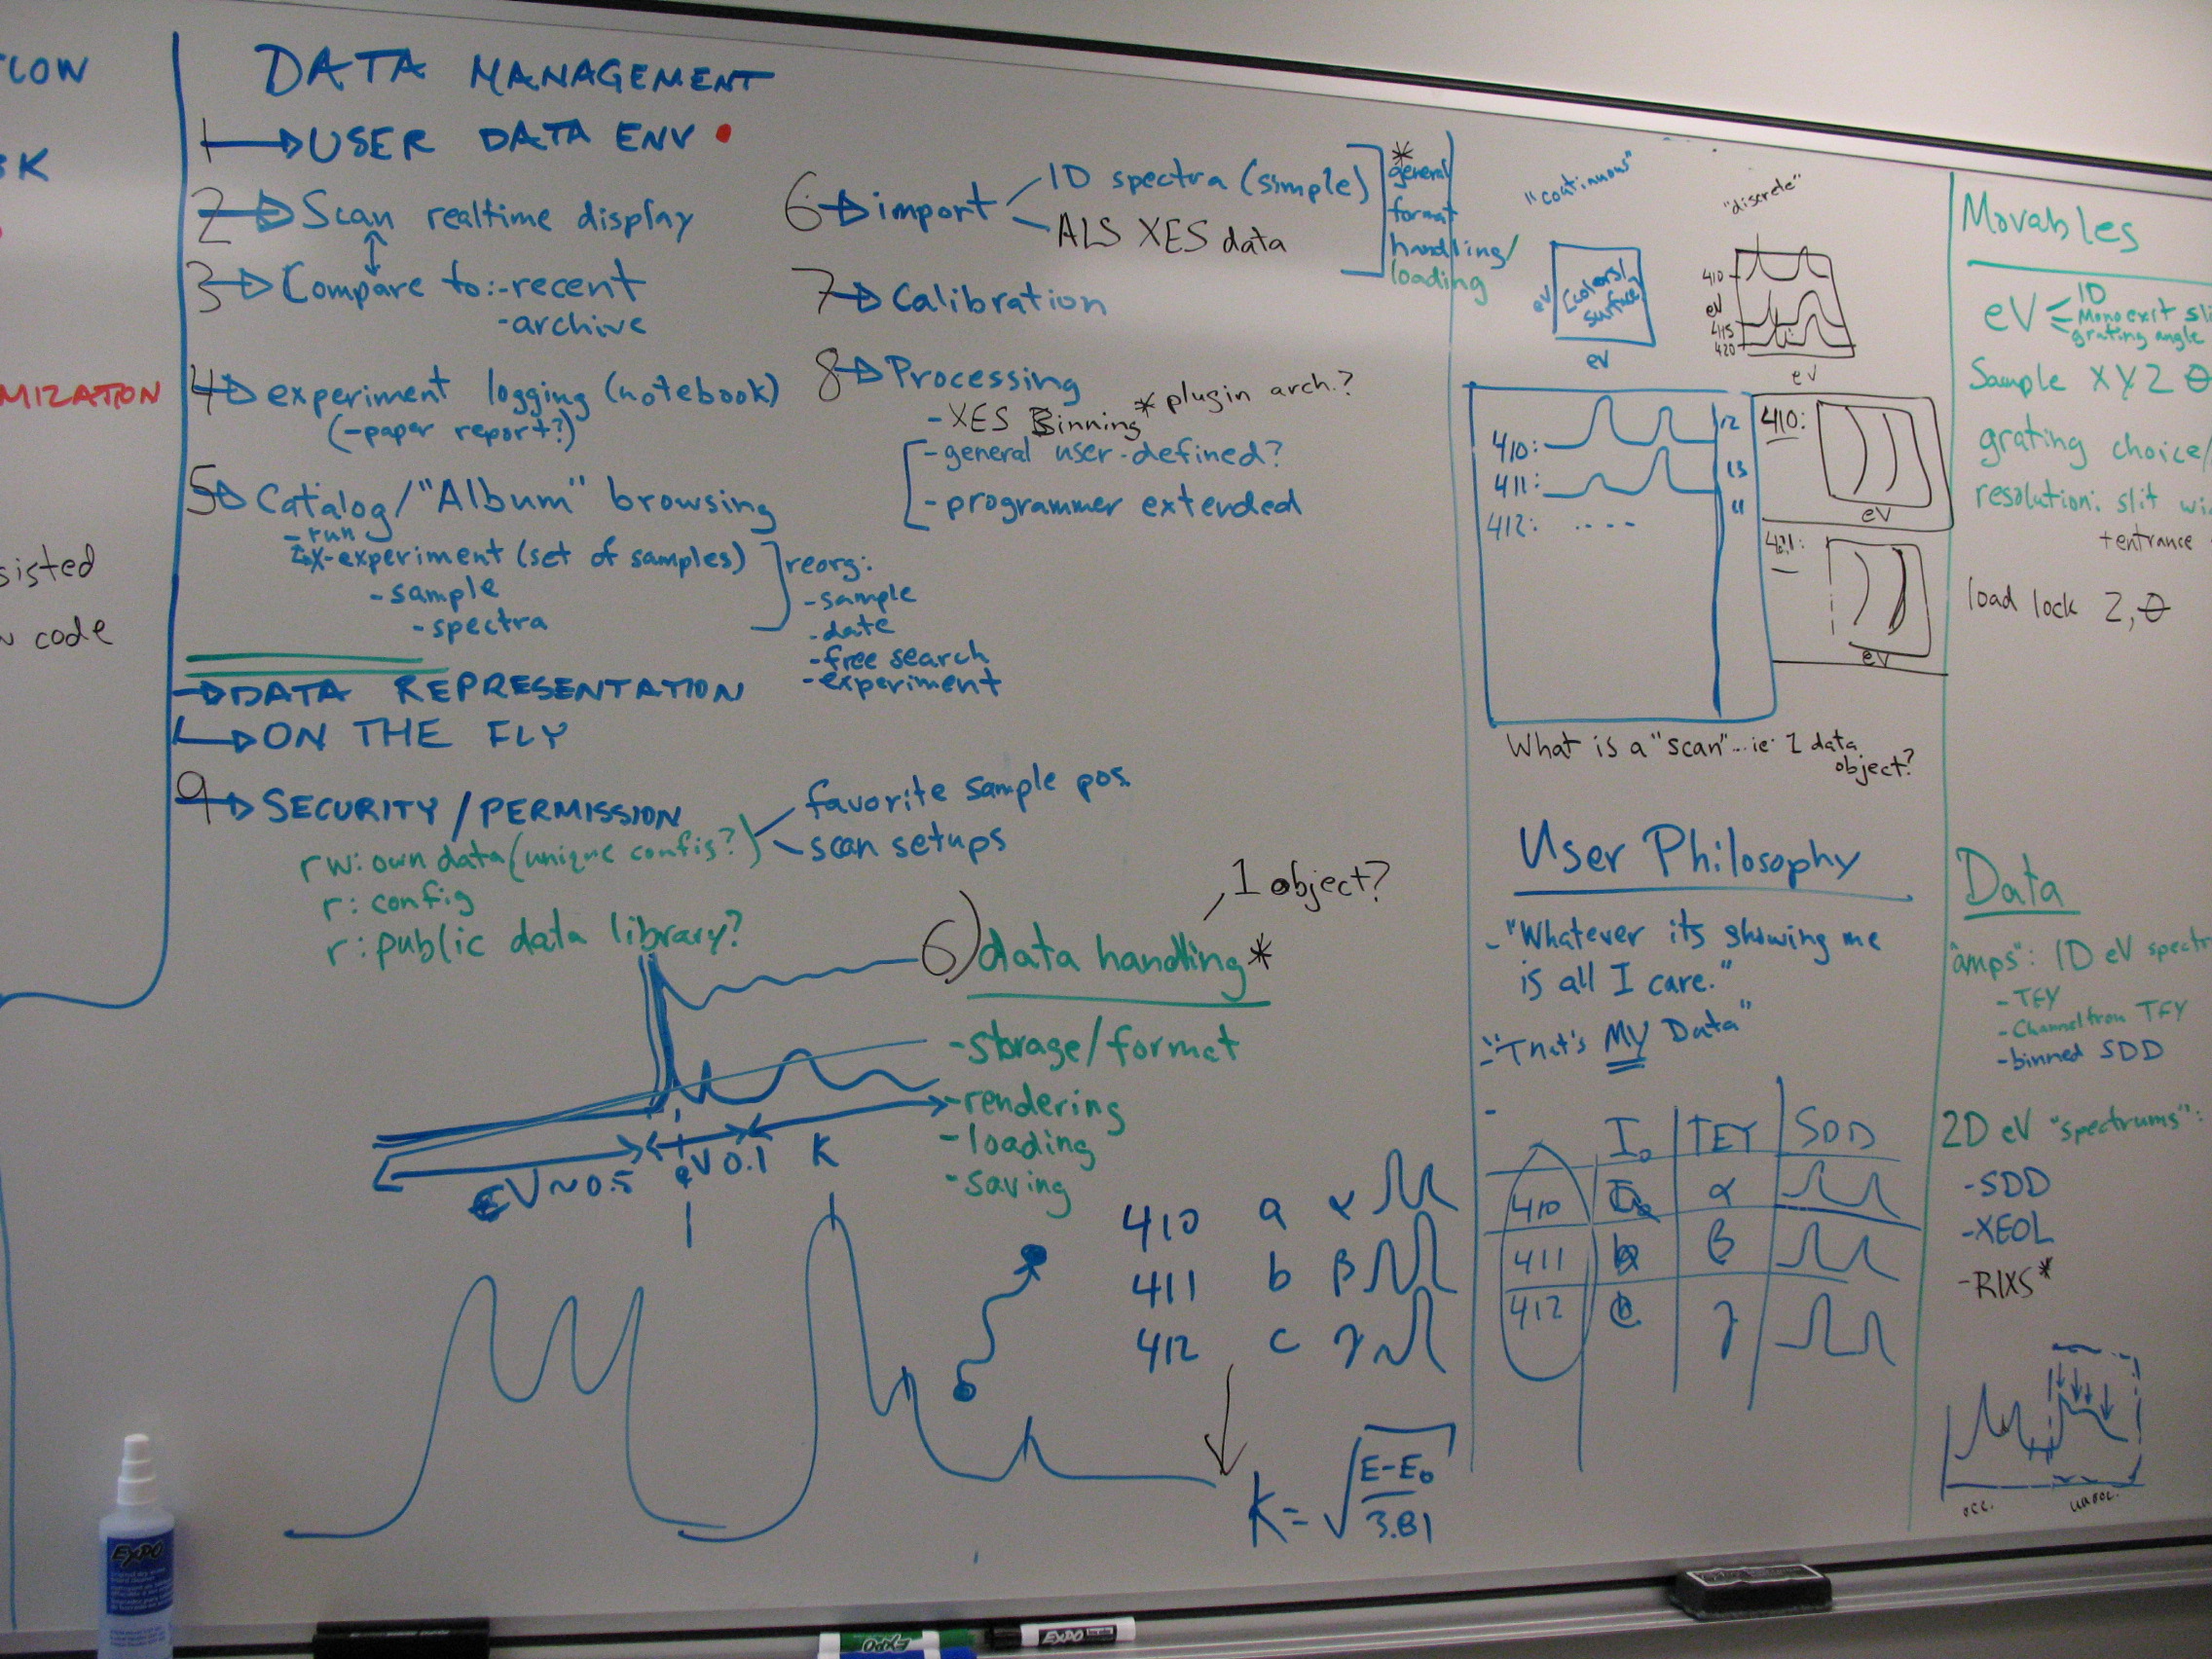 MIZATION
sisted
code
DATA MANAGEMENT
1 USER DATA ENV
2 Scan realtime display
3 Compare to: -recent
-archive
4 experiment logging (notebook)
(-paper report?)
5 Catalog/"Album" browsing
-run
-experiment (set of samples)
-sample
-spectra
reorg:
-sample
-date
-free search
-experiment
DATA REPRESENTATION
ON THE FLY
9 SECURITY/PERMISSION
rw: own data (unique config?)
favorite sample pos.
scan setups
r: config
r: public data library?
6 import
1D spectra (simple)
ALS XES data
* general
format
handling/
loading
7 Calibration
8 Processing
-XES Binning * plugin arch.?
-general user-defined?
-programmer extended
1 object?
6) data handling*
-storage/format
-rendering
-loading
-saving
eV ~0.5 eV 0.1 K
410 a α
411 b β
412 c γ
K = √ E-E₀
3.81
"continuous"
eV
(colors)
surface
eV
"discrete"
410
eV
415
420
eV
410: 12
411: 13
412: .... 11
410:
eV
eV
What is a "scan"... ie. 1 data
object?
User Philosophy
- "Whatever its showing me
is all I care."
- "That's MY Data"
-
I₀ TEY SDD
410 a α
411 b β
412 c γ
Movables
eV
ID
Mono exit sli
grating angle
Sample X Y Z θ
grating choice/
resolution: slit wi
+entrance
load lock Z, θ
Data
"amps": 1D eV spectr
-TEY
-Channeltron TFY
-binned SDD
2D eV "spectrums":
-SDD
-XEOL
-RIXS*
occ. unocc.
EXPO
EXPO
EXPO